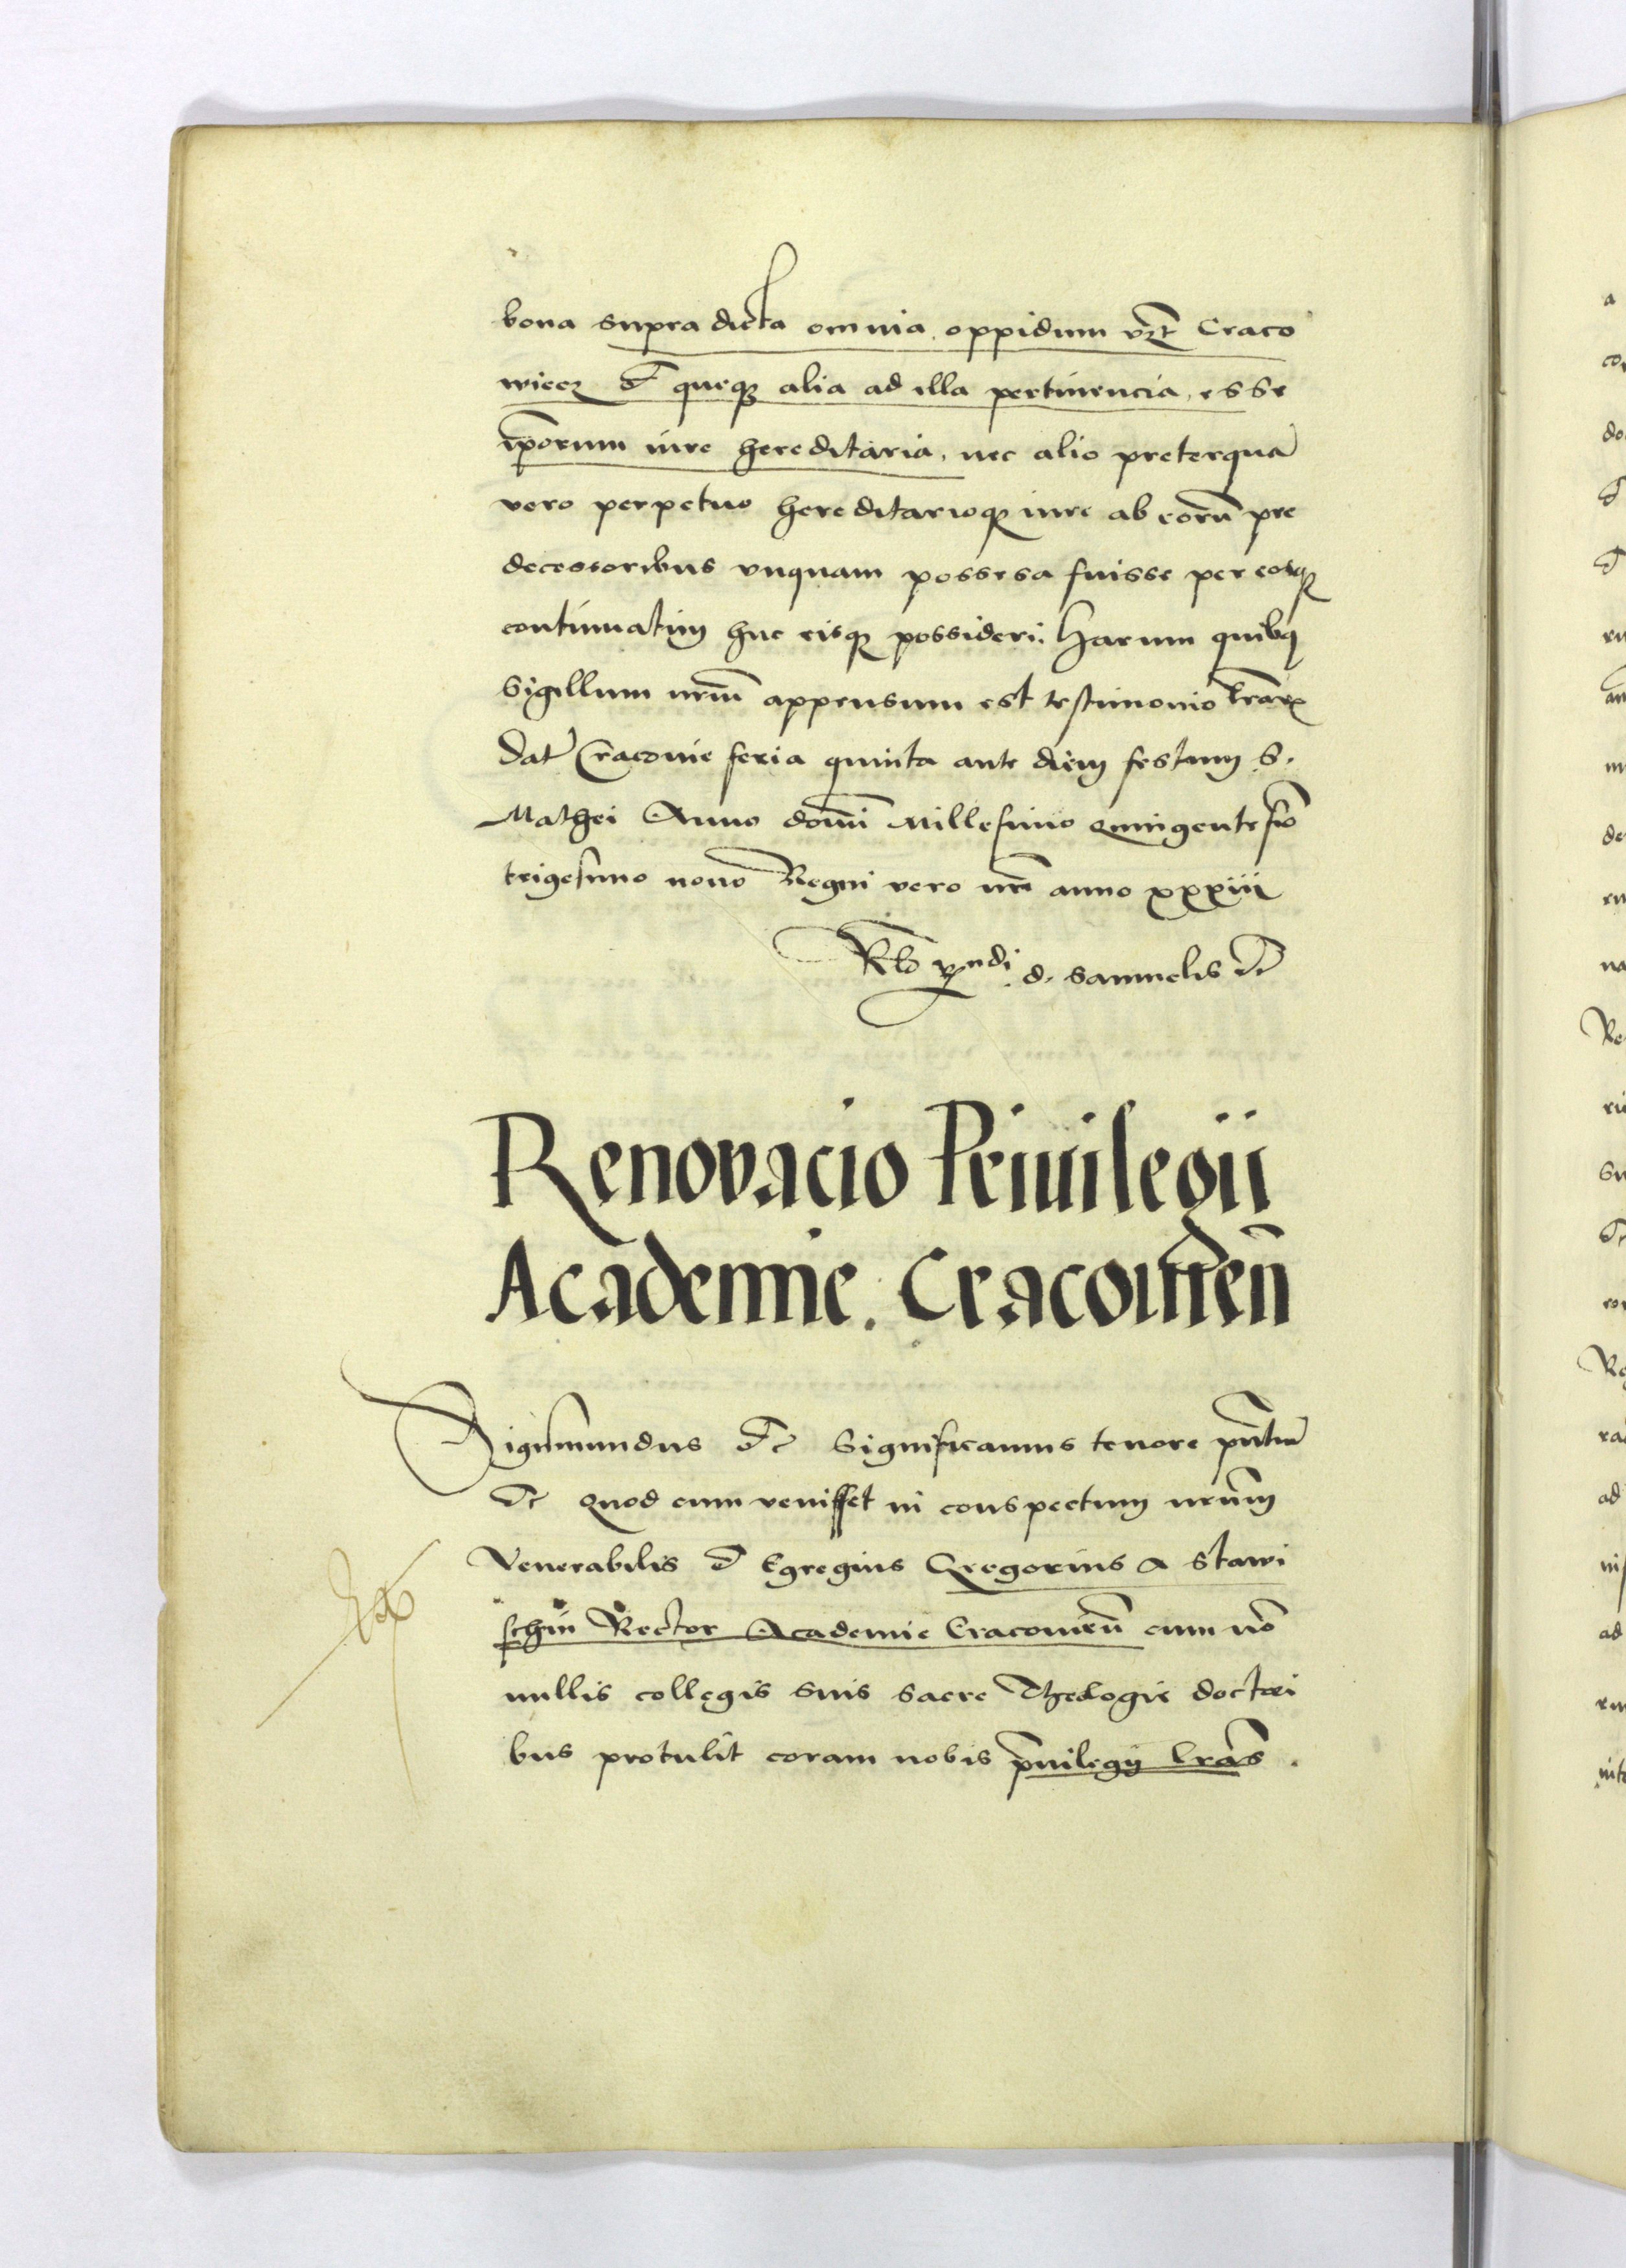 bona supra dicta omnia, oppidum vꝫt Craco
wiecz et queqꝫ alia ad illa pertinencia, esse
ip̄orum iure hereditaria, nec alio preterquā
vero perpetuo hereditarioqꝫ iure ab eorū pre
decessoribus vnquam possesa fuisse per eosqꝫ
continuatim huc eisqꝫ possideri. Harum quibꝰ
Sigillum nr̄um appensum est testimonio l̄rarꝫ
Dat̄ Cracovie feria quinta ante diem festum S.
Mathei Anno domi̅ Millesimo quingentesi̅o
trigesimo nono Regni vero nr̄i anno xxxiii
R̄lo d. Samuelis etc̄
Renovacio Privilegii
Academie . Cracovien̄
Sigismundus etc̄ Significamus tenore pn̄tiū
etc̄ Quod cum venisset in conspectum nr̄um
Venerabilis et Egregius Gregorius a Stawi
schin Rector Academie Cracovien̄ cum nō
nullis collegis suis sacre Theologie doctori
bus protulit coram nobis p̄uilegij l̄ras .